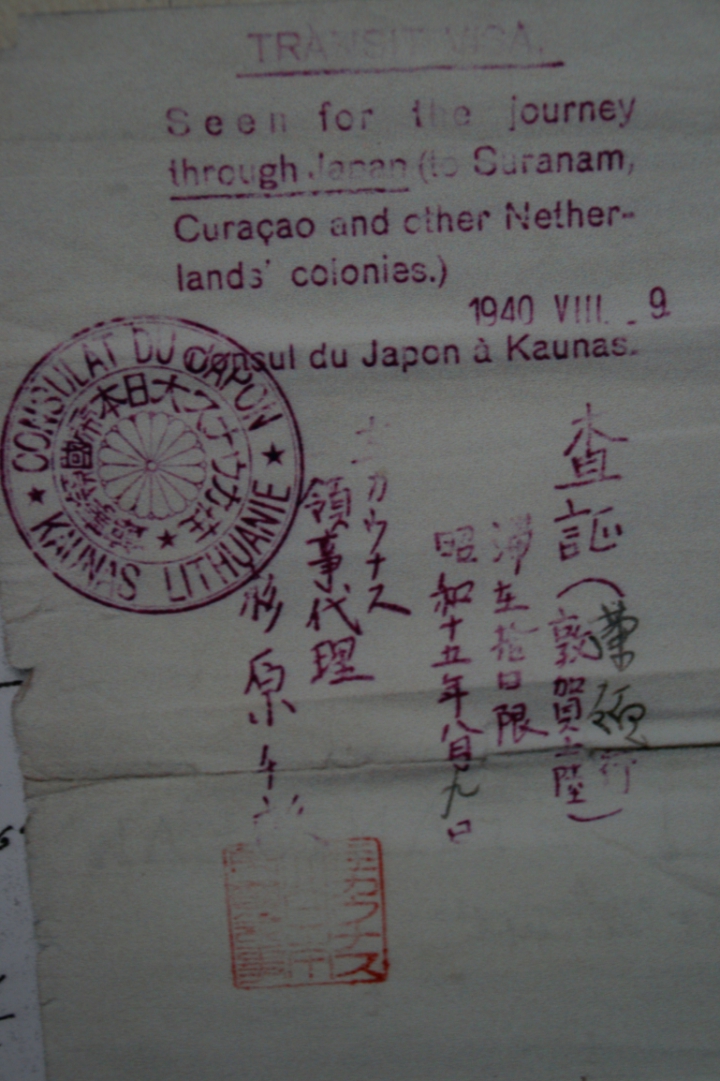 TRANSIT VISA.
Seen for the journey
through Japan (to Suranam,
Curaçao and other Nether-
lands' colonies.)
1940 VIII. 9
Consul du Japon à Kaunas.
CONSULAT DU JAPON
KAUNAS LITHUANIE
査証（敦賀上陸）
行
滞在拾日限
昭和十五年八月九日
在カウナス
領事代理
杉原千
カウナス